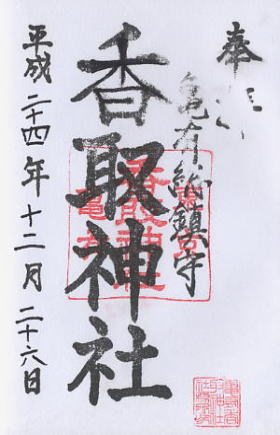 奉拝
亀有総鎮守
香取神社
平成二十四年十二月二十六日